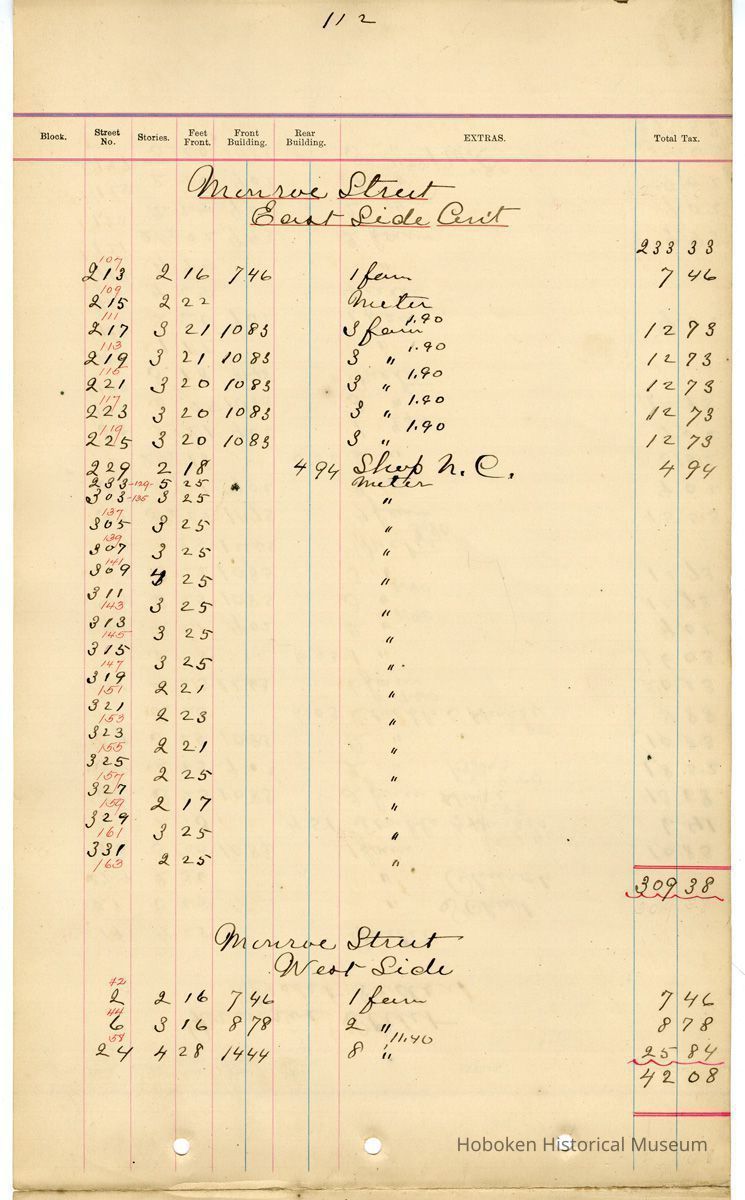 112
Block. Street No. Stories. Feet Front. Front Building. Rear Building. EXTRAS. Total Tax.
Monroe Street
East Side Con't
233 33
107
213 2 16 7 46 1 fam 7 46
109
215 2 22 Meter
111
217 3 21 10 83 3 fam 1.90 12 73
113
219 3 21 10 83 3 " 1.90 12 73
115
221 3 20 10 83 3 " 1.90 12 73
117
223 3 20 10 83 3 " 1.90 12 73
119
225 3 20 10 83 3 " 1.90 12 73
229 2 18 4 94 Shop N.C. 4 94
233 -129- 5 25 meter
303 -135 3 25 "
137
305 3 25 "
139
307 3 25 "
141
309 3 25 "
311
143 3 25 "
313
145 3 25 "
315
147 3 25 "
319
151 2 21 "
321
153 2 23 "
323
155 2 21 "
325
157 2 25 "
327
159 2 17 "
329
161 3 25 "
331
163 2 25 "
309 38
Monroe Street
West Side
42
2 2 16 7 46 1 fam 7 46
44
6 3 16 8 78 2 " 8 78
58
24 4 28 14 44 8 " 11.40 25 84
42 08
Hoboken Historical Museum